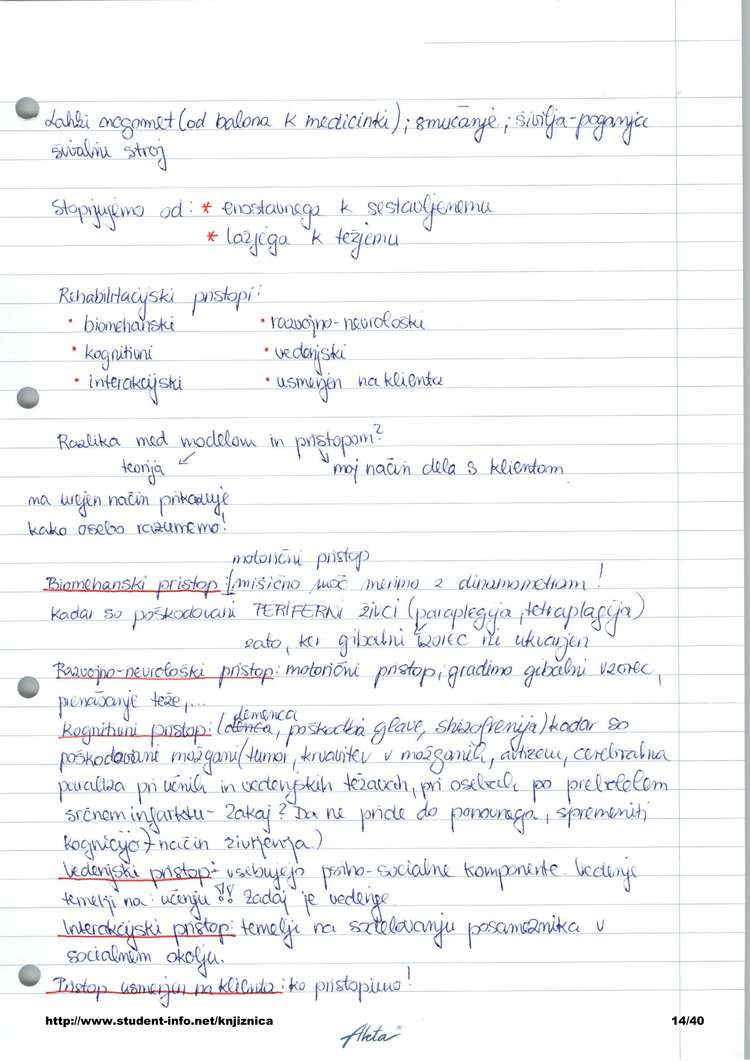 Lahki nogomet (od balona k medicinki); smučanje; šivilja-poganja
šivalni stroj
Stopnjujemo od: * enostavnega k sestavljenemu
* lažjega k težjemu
Rehabilitacijski pristopi:
• biomehanski • razvojno-nevrološki
• kognitivni • vedenjski
• interakcijski • usmerjen na klienta
Razlika med modelom in pristopom?
teorija ↙ ↘ moj način dela s klientom
na urejen način prikazuje
kako osebo razumemo!
motorični pristop
Biomehanski pristop: (mišično moč merimo z dinamometrom!
kadar so poškodovani PERIFERNI živci (paraplegija, tetraplegija)
zato, ker gibalni vzorec ni okvarjen
Razvojno-nevrološki pristop: motorični pristop, gradimo gibalni vzorec,
prenašanje teže,...
demenca
Kognitivni pristop: (poškodba glave, shizofrenija) kadar so
poškodovani možgani (tumor, krvavitev v možganih, avtizem, cerebralna
paraliza pri učnih in vedenjskih težavah, pri osebah po prebolelem
srčnem infarktu - Zakaj? Da ne pride do ponovnega, spremeniti
kognicijo → način življenja)
Vedenjski pristop: vsebujejo psiho-socialne komponente. Vedenje
temelji na: učenju!! Zadaj je vedenje.
Interakcijski pristop: temelji na sodelovanju posameznika v
socialnem okolju.
Pristop usmerjen na klienta: ko pristopimo!
http://www.student-info.net/knjiznica 14/40
Akta